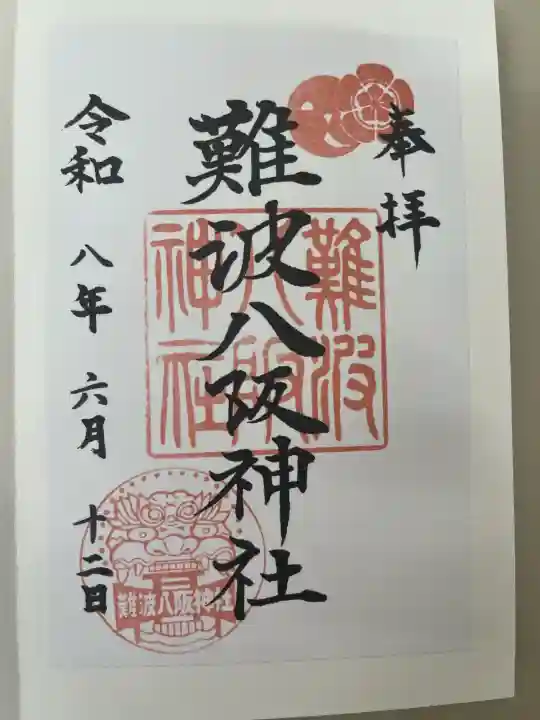 奉拝
難波八阪神社
難波
八阪
神社
令和 八年 六月 十二日
難波八阪神社